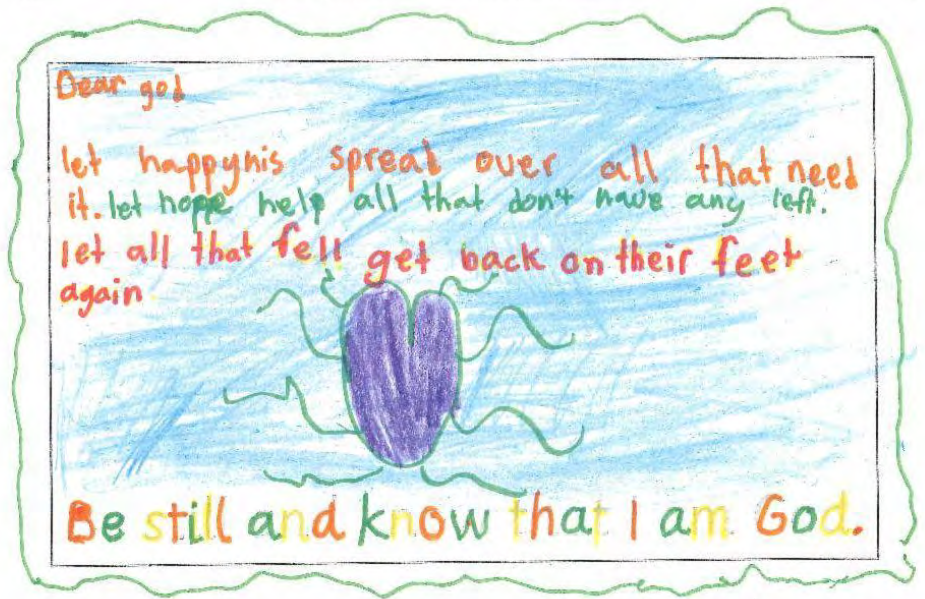 Dear god
let happynis spread over all that need
it. let hoppe help all that don't have any left.
let all that fell get back on their feet
again
Be still and know that I am God.